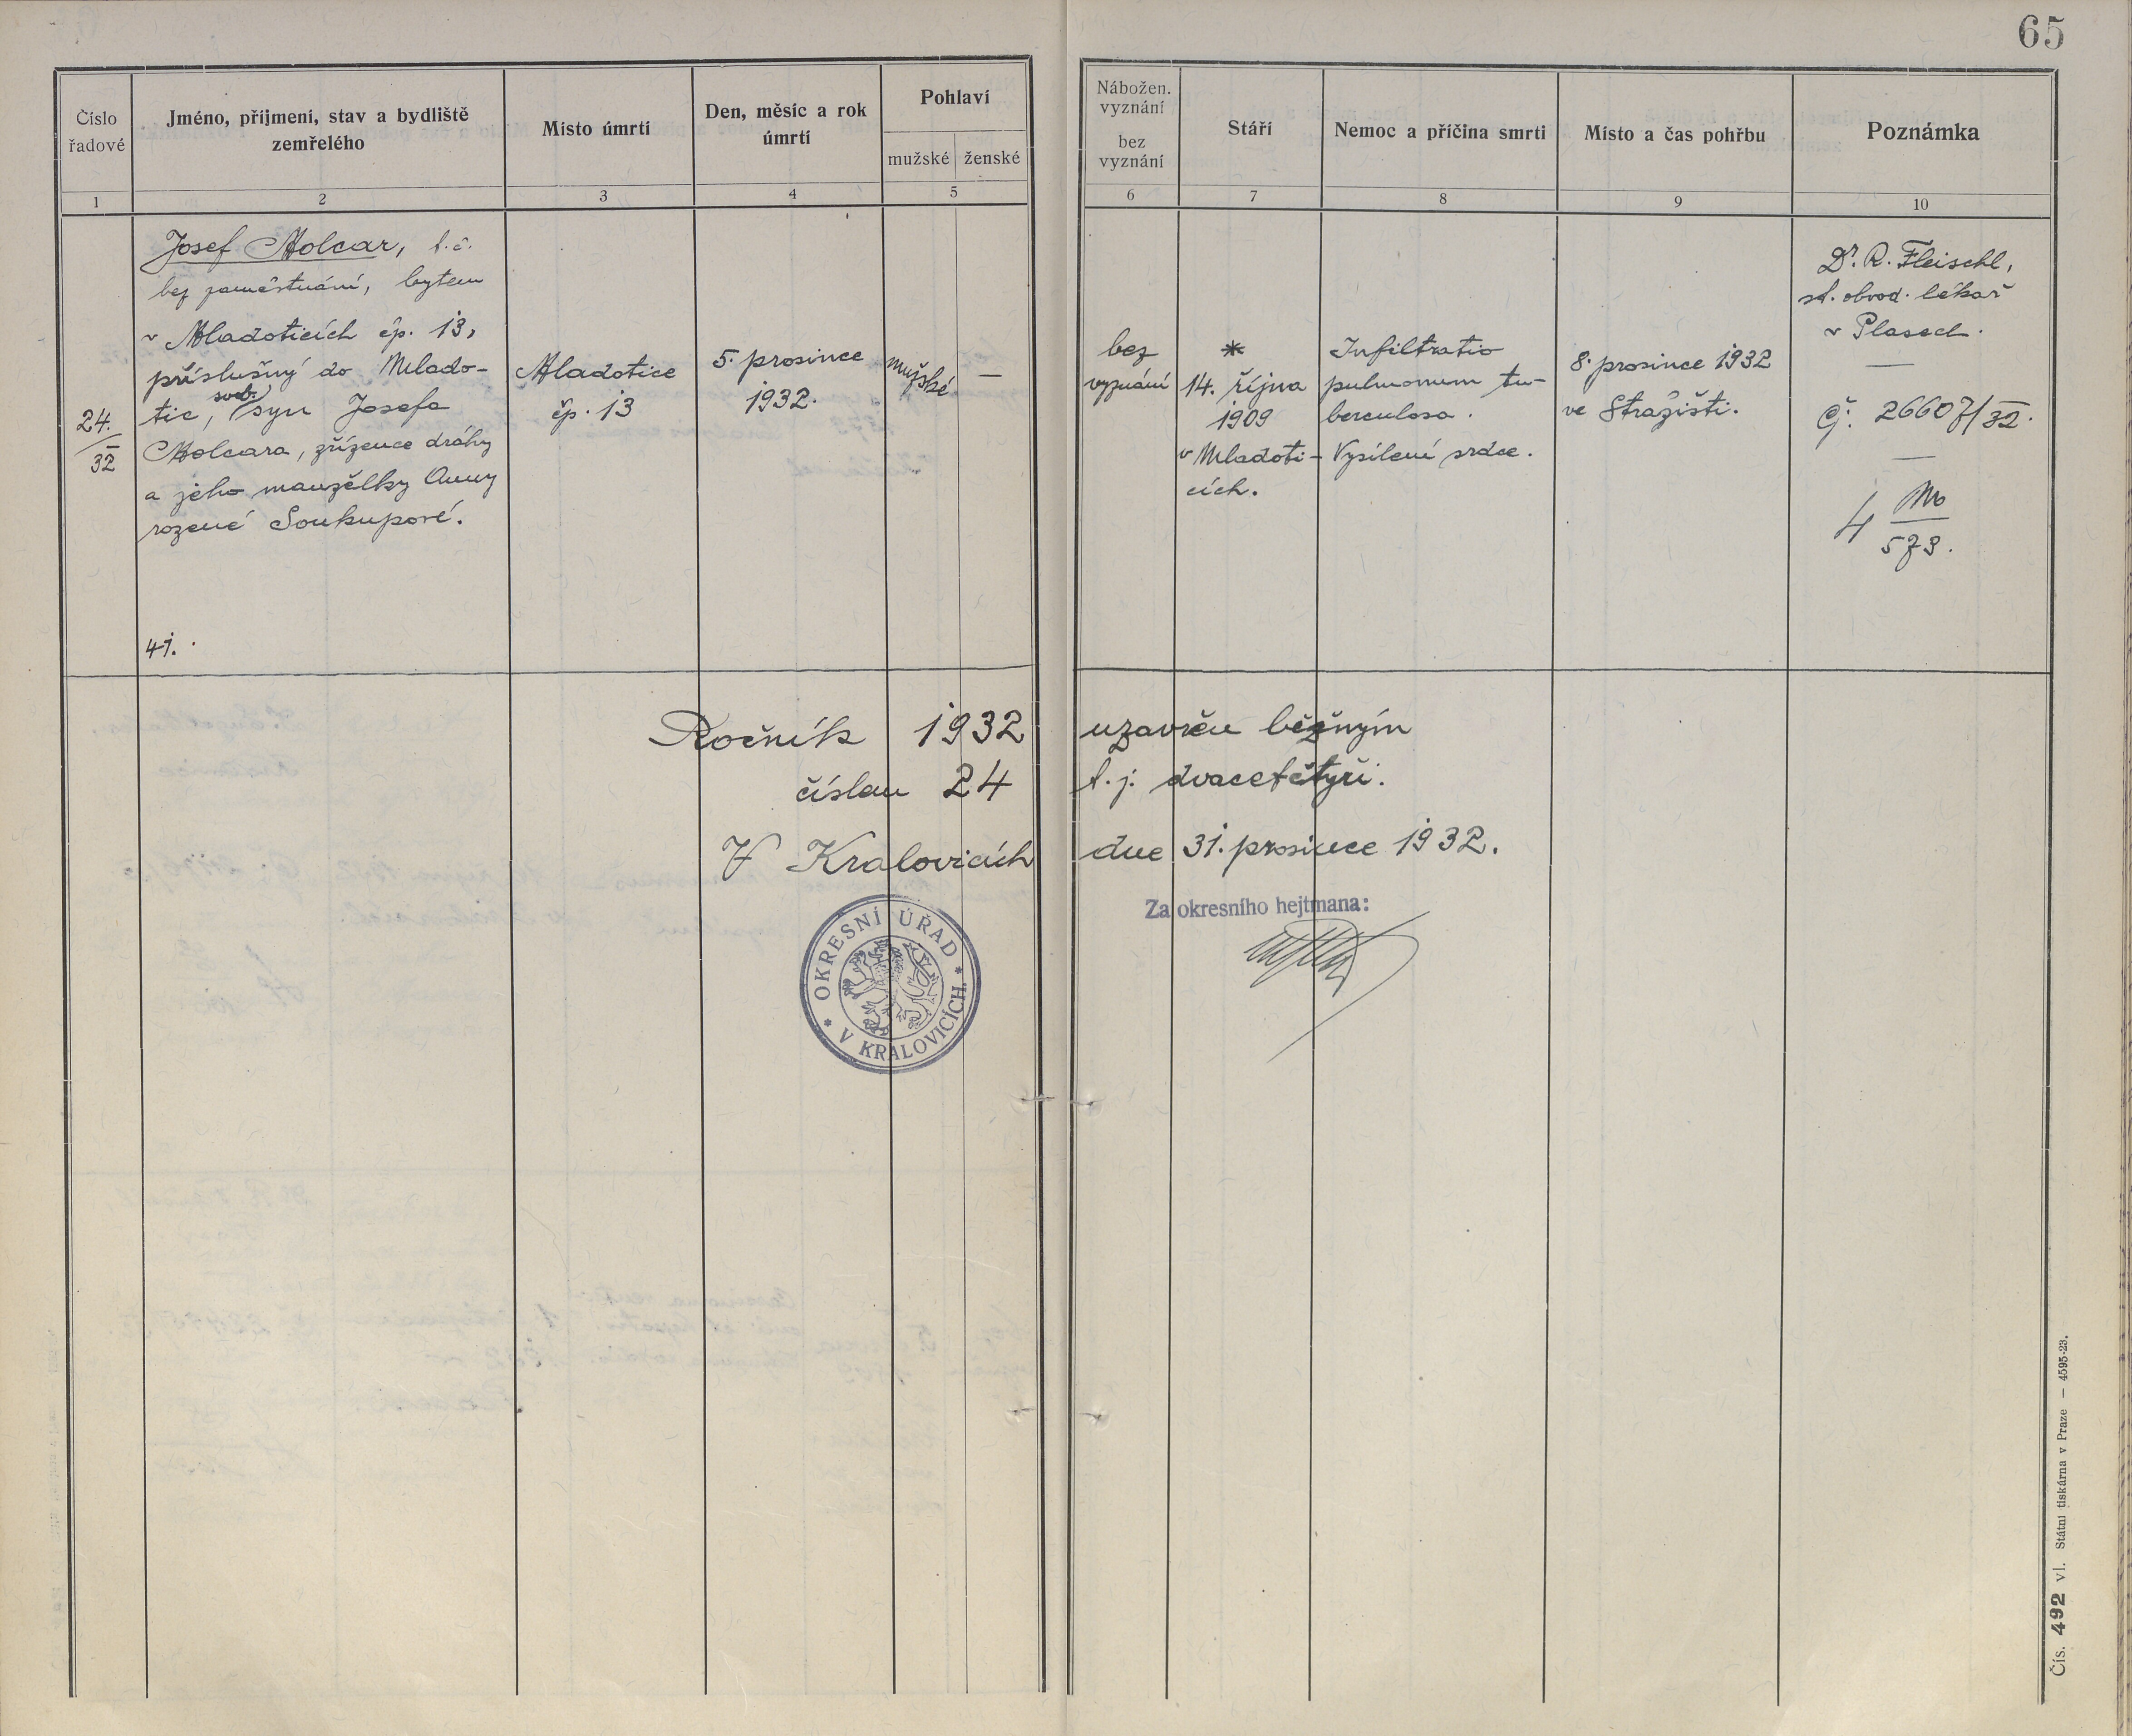 65
Číslo
řadové
Jméno, příjmení, stav a bydliště
zemřelého
Místo úmrtí
Den, měsíc a rok
úmrtí
Pohlaví
mužské
ženské
Nábožen.
vyznání
bez
vyznání
Stáří
Nemoc a příčina smrti
Místo a čas pohřbu
Poznámka
1
2
3
4
5
6
7
8
9
10
24.
32
Josef Molcar, t.č.
bez zaměstnání, bytem
v Mladoticích čp. 13,
příslušný do Mlado-
svob.
tic, syn Josefa
Molcara, zřízence dráhy
a jeho manželky Anny
rozené Soukupové.
41.
Mladotice
čp. 13
5. prosince
1932.
mužské
—
bez
vyznání
*
14. října
1909
v Mladoti-
cích.
Infiltratio
pulmonum tu-
berculosa.
Vysílení srdce.
8. prosince 1932
ve Stražišti.
Dr. R. Fleischl,
st. obvod. lékař
v Plasech.
—
Čj. 26607/32.
—
4 Mo
573.
Ročník 1932 uzavřen běžným
číslem 24 t.j. dvacetčtyři.
V Kralovicích dne 31. prosince 1932.
Za okresního hejtmana:
* OKRESNÍ ÚŘAD *
V KRALOVICÍCH.
Čís. 492 vl. Státní tiskárna v Praze — 4595-23.